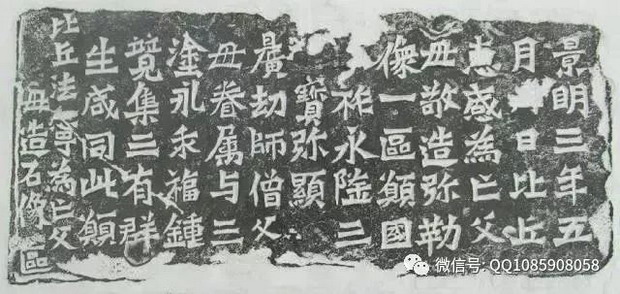 景明三年五
月日比丘
惠感為亡父
母敬造弥勒
像一區願國
祚永隆三
寶弥顯
廣劫師僧父
母眷属与三
塗永乖福鍾
竟集三有群
生咸同此願
比丘法寧為亡父
母造石像區
微信号: QQ1085908058